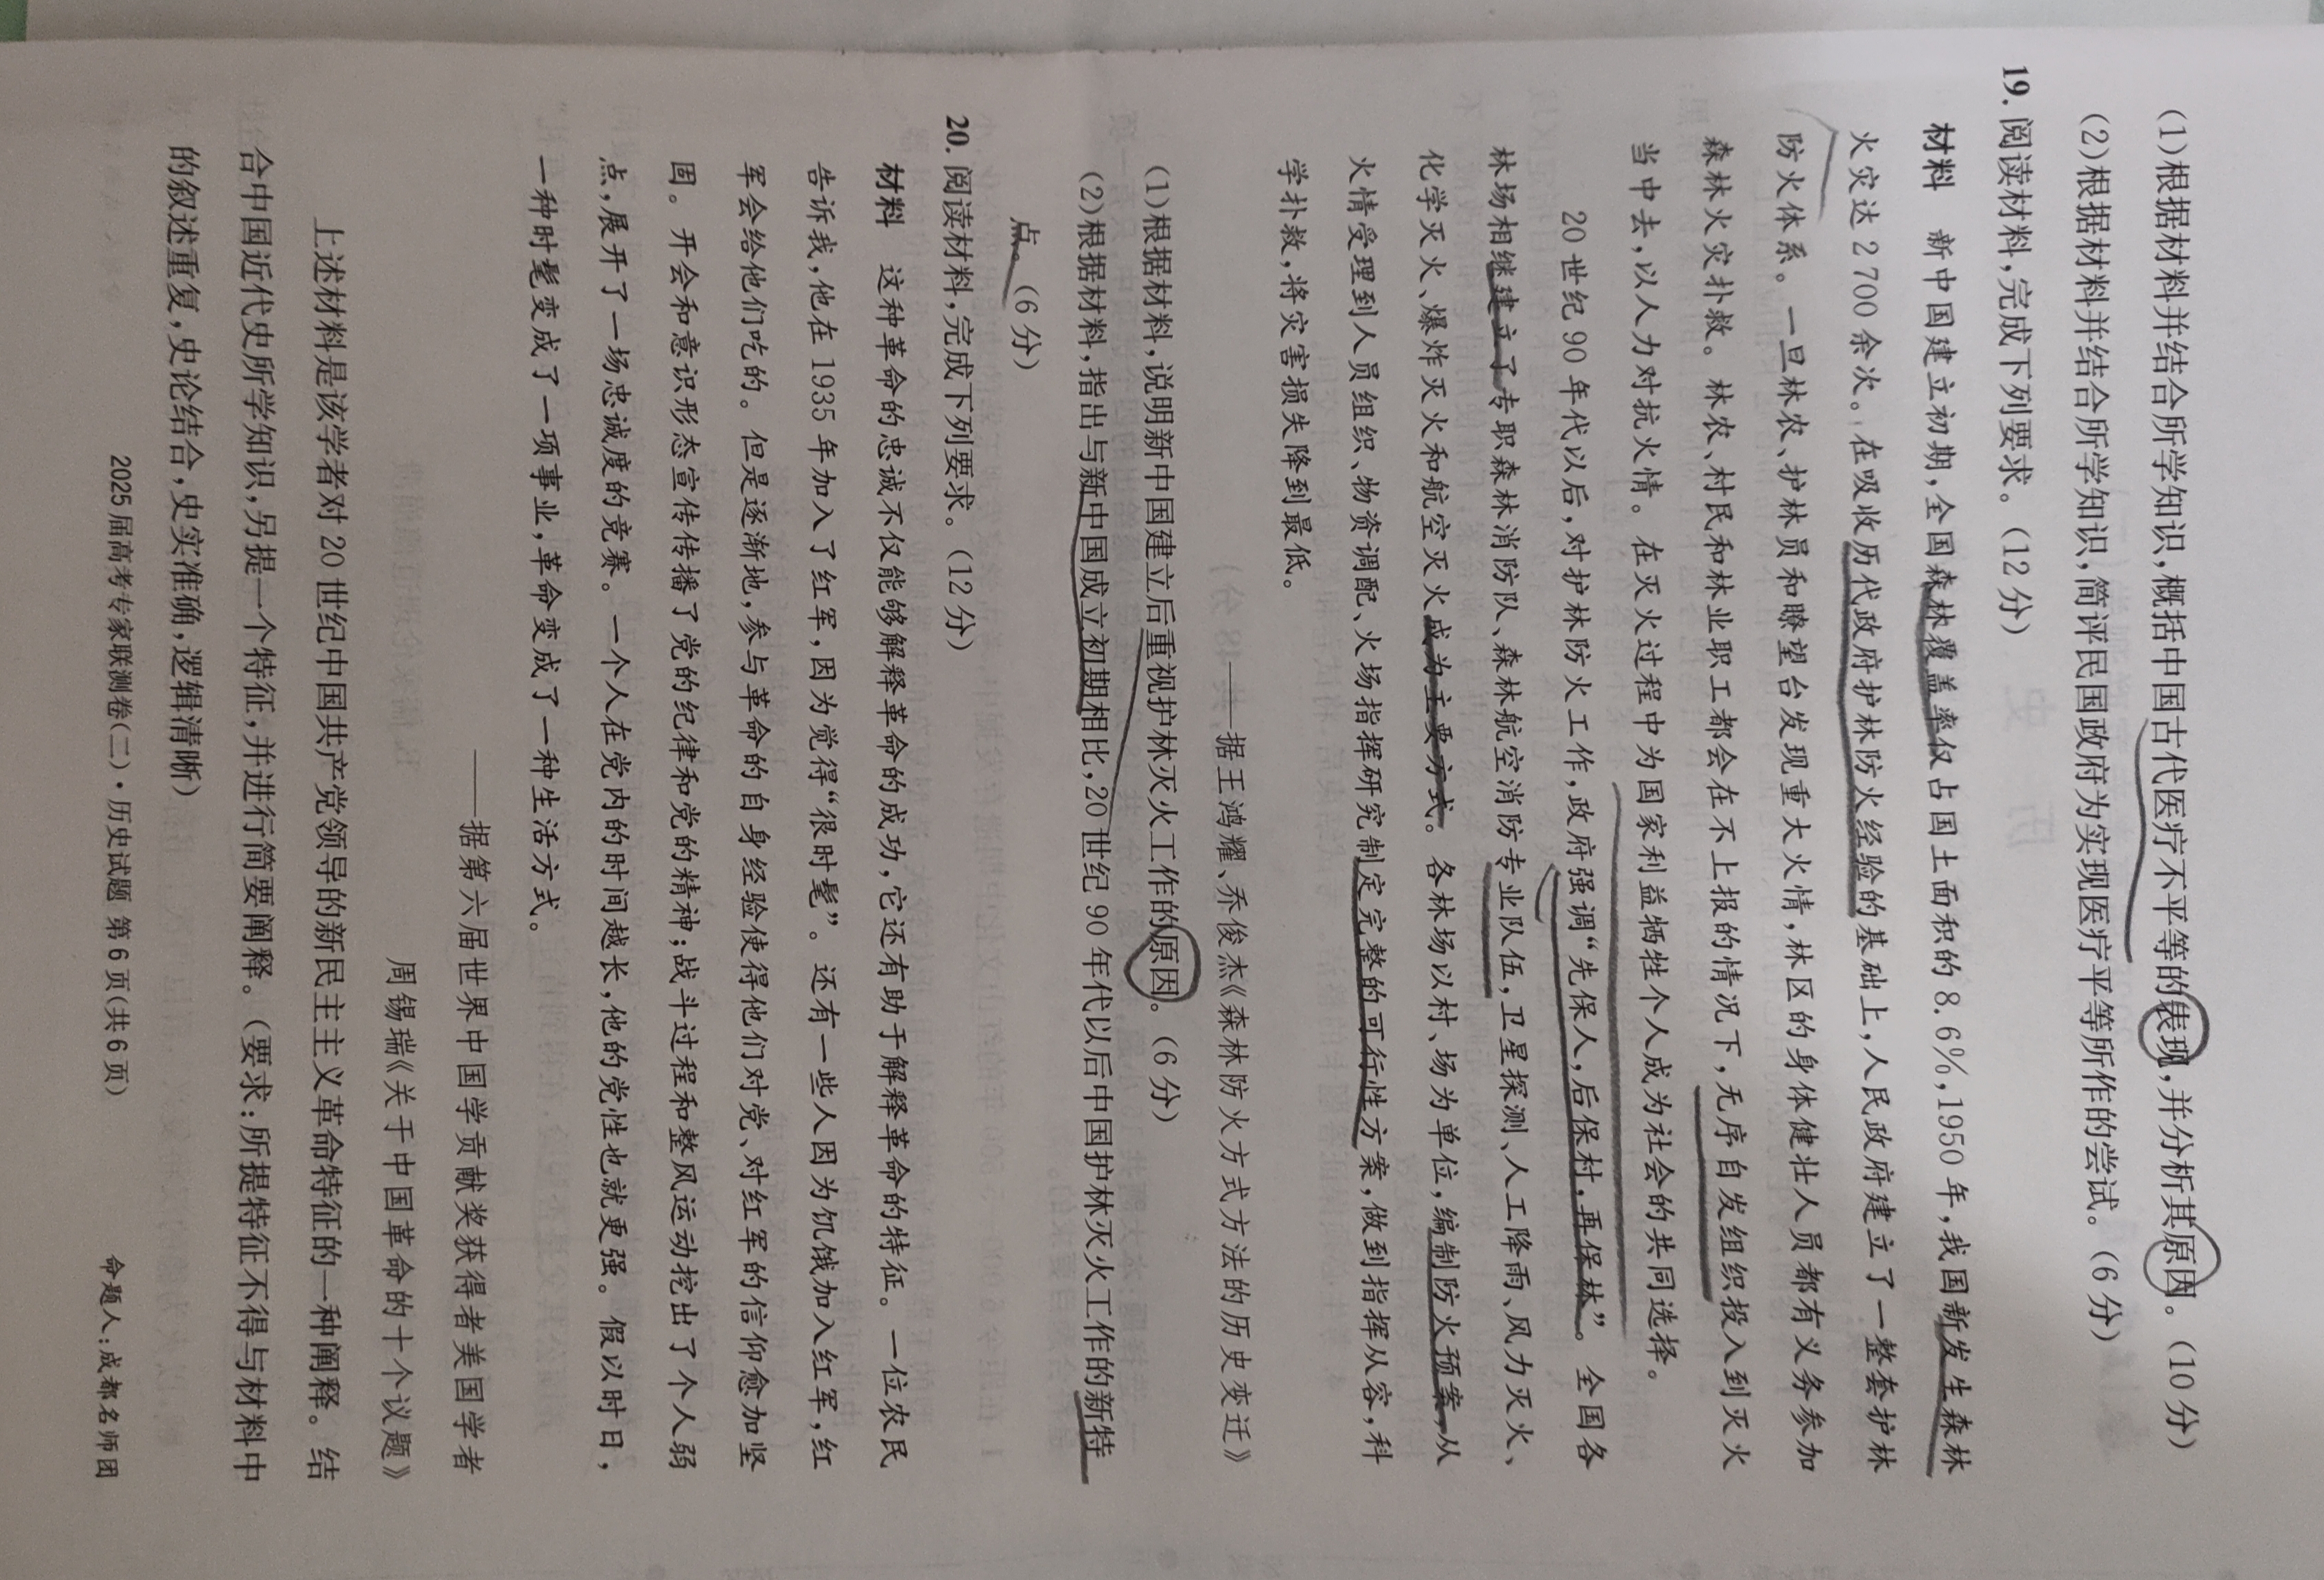 (1)根据材料并结合所学知识,概括中国古代医疗不平等的表现,并分析其原因。(10分)
(2)根据材料并结合所学知识,简评民国政府为实现医疗平等所作的尝试。(6分)
19. 阅读材料,完成下列要求。(12分)
材料 新中国建立初期,全国森林覆盖率仅占国土面积的8.6%,1950年,我国新发生森林
火灾达2700余次。在吸收历代政府护林防火经验的基础上,人民政府建立了一整套护林
防火体系。一旦林农、护林员和瞭望台发现重大火情,林区的身体健壮人员都有义务参加
森林火灾扑救。林农、村民和林业职工都会在不上报的情况下,无序自发组织投入到灭火
当中去,以人力对抗火情。在灭火过程中为国家利益牺牲个人成为社会的共同选择。
20世纪90年代以后,对护林防火工作,政府强调“先保人,后保村,再保林”。全国各
林场相继建立了专职森林消防队、森林航空消防专业队伍,卫星探测、人工降雨、风力灭火、
化学灭火、爆炸灭火和航空灭火成为主要方式。各林场以村、场为单位,编制防火预案,从
火情受理到人员组织、物资调配、火场指挥研究制定完整的可行性方案,做到指挥从容,科
学扑救,将灾害损失降到最低。
——据王鸿耀、乔俊杰《森林防火方式方法的历史变迁》
(1)根据材料,说明新中国建立后重视护林灭火工作的原因。(6分)
(2)根据材料,指出与新中国成立初期相比,20世纪90年代以后中国护林灭火工作的新特
点。(6分)
20. 阅读材料,完成下列要求。(12分)
材料 这种革命的忠诚不仅能够解释革命的成功,它还有助于解释革命的特征。一位农民
告诉我,他在1935年加入了红军,因为觉得“很时髦”。还有一些人因为饥饿加入红军,红
军会给他们吃的。但是逐渐地,参与革命的自身经验使得他们对党、对红军的信仰愈加坚
固。开会和意识形态宣传传播了党的纪律和党的精神;战斗过程和整风运动挖出了个人弱
点,展开了一场忠诚度的竞赛。一个人在党内的时间越长,他的党性也就更强。假以时日,
一种时髦变成了一项事业,革命变成了一种生活方式。
——据第六届世界中国学贡献奖获得者美国学者
周锡瑞《关于中国革命的十个议题》
上述材料是该学者对20世纪中国共产党领导的新民主主义革命特征的一种阐释。结
合中国近代史所学知识,另提一个特征,并进行简要阐释。(要求:所提特征不得与材料中
的叙述重复,史论结合,史实准确,逻辑清晰)
2025届高考专家联测卷(二)·历史试题 第6页(共6页) 命题人:成都名师团